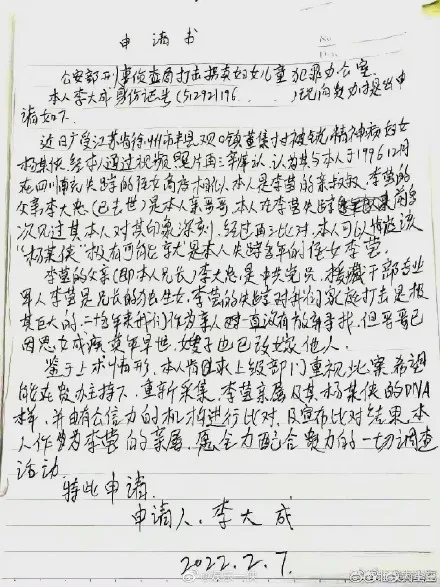 申请书
公安部刑事侦查局打击拐卖妇女儿童犯罪办公室
本人李大成身份证号(512921196         )现向贵办提出申
请如下.
近日广受江苏省徐州市丰县欢口镇董集村被锁精神病妇女
杨某侠,经本人通过视频照片再三辨认,认为其与本人于1996.12月
在四川南充失踪的侄女高度相似,本人是李莹的亲叔叔,李莹的
父亲李大忠(已去世)是本人亲哥哥,本人在李莹失踪前多
次见过其本人对其印象深刻.经过再三比对,本人可以
"杨某侠"极有可能是本人失踪多年的侄女李莹.
李莹的父亲(即本人兄长)李大忠是中共党员,援藏干部专业
军人李莹是兄长的独生女.李莹的失踪对我们家庭打击是极
其巨大的.二十多年来我们作为亲人一直没有放弃寻找,但哥哥已
因思女成疾英年早世,嫂子也已改嫁他人.
鉴于上术情形,本人特恳求上级部门重视此案希望
能在贵办主持下,重新采集,李莹亲属及其杨某侠的DNA
样,并由有公信力的机构进行比对,及宣布比对结果,本
人作为李莹的亲属,愿全力配合贵办的一切调查
活动.
特此申请.
申请人.李大成
2022.2.7.